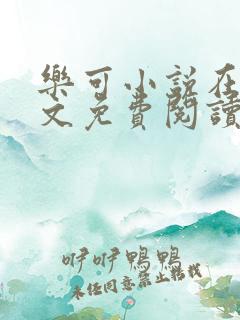 樂可小說在
文免費閱讀
咿咿鴨鴨
未經同意禁止轉載